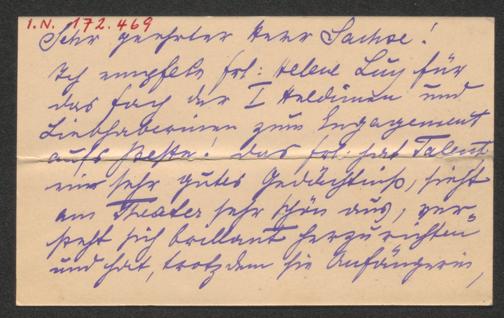 I.N. 172.469
Sehr geehrter Herr Sachse!
Ich empfele Frl: Helene Lux für
das Fach der I Heldinnen und
Liebhaberinnen zum Engagement
aufs Beste! Das Frl: hat Talent,
ein sehr gutes Gedächtniß, sieht
am Theater sehr schön aus, ver-
steht sich brillant herzurichten
und hat, trotzdem sie Anfängerin,